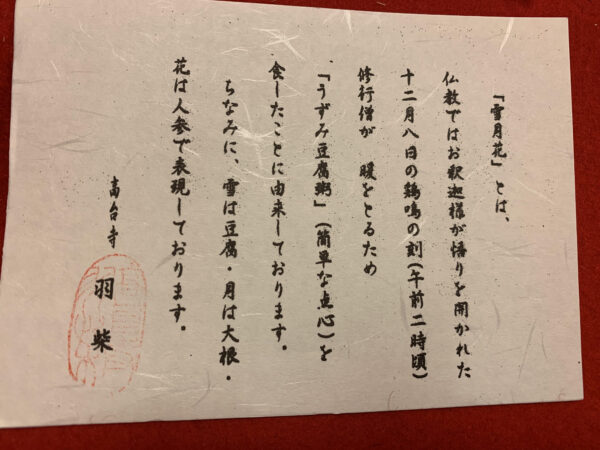 「雪月花」とは、
仏教ではお釈迦様が悟りを開かれた
十二月八日の鶏鳴の刻(午前二時頃)
修行僧が　暖をとるため
「うずみ豆腐粥」(簡単な点心)を
食したことに由来しております。
ちなみに、雪は豆腐・月は大根・
花は人参で表現しております。
高台寺　羽柴